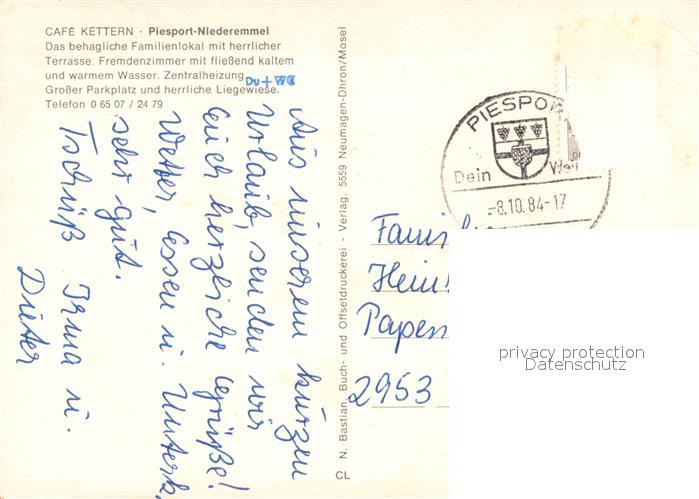 CAFÉ KETTERN · Piesport-Niederemmel
Das behagliche Familienlokal mit herrlicher
Terrasse. Fremdenzimmer mit fließend kaltem
und warmem Wasser. Zentralheizung
Du + WC
Großer Parkplatz und herrliche Liegewiese.
Telefon 0 65 07 / 24 79
Aus unserem kurzen
Urlaub, senden wir
Euch herzliche Grüße!
Wetter, Essen u. Unterk.
sehr gut.
Tschüß Irma u.
Dieter
N. Bastian, Buch- und Offsetdruckerei - Verlag, 5559 Neumagen-Dhron/Mosel
CL
PIESPOR
Dein Wei
-8.10.84-17
Famil
Hein
Papen
2953
privacy protection
Datenschutz